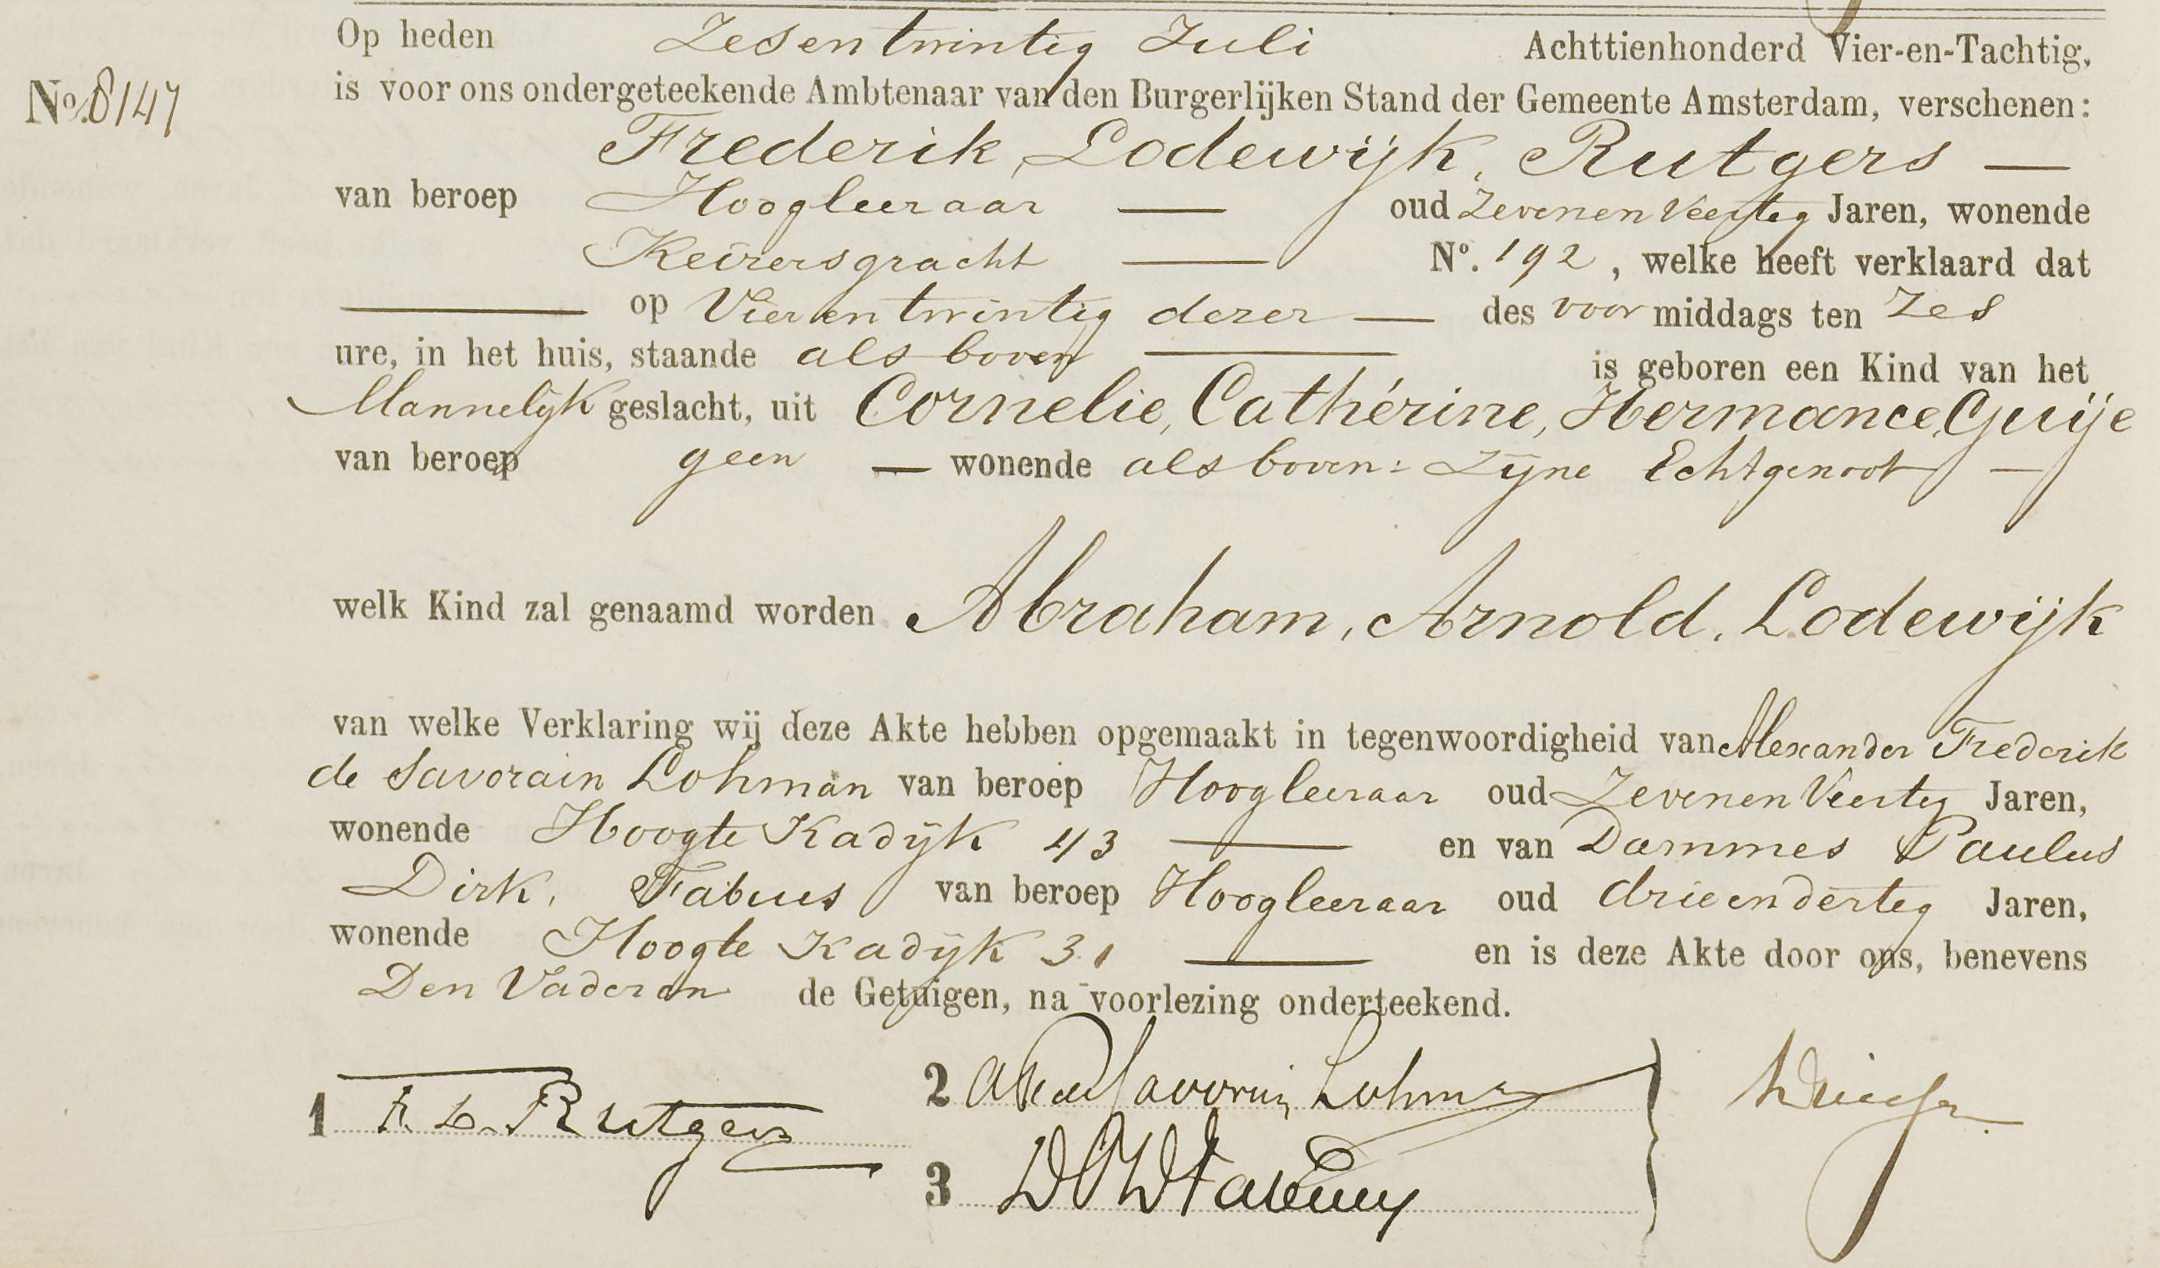 Op heden Zesentwintig Juli Achttienhonderd Vier-en-Tachtig,
No. 8147
is voor ons ondergeteekende Ambtenaar van den Burgerlijken Stand der Gemeente Amsterdam, verschenen:
Frederik, Lodewijk, Rutgers —
van beroep Hoogleeraar — oud Zevenen Veertig Jaren, wonende
Keizersgracht — No. 192, welke heeft verklaard dat
— op Vier en twintig dezer — des voor middags ten Zes
ure, in het huis, staande als boven — is geboren een Kind van het
Mannelijk geslacht, uit Cornelie, Cathérine, Hermance, Guije
van beroep geen — wonende als boven: Zijne Echtgenoot —
welk Kind zal genaamd worden Abraham, Arnold, Lodewijk
van welke Verklaring wij deze Akte hebben opgemaakt in tegenwoordigheid van Alexander Frederik
de Savorain Lohman van beroep Hoogleeraar oud Zevenen Veertig Jaren,
wonende Hoogte Kadijk 43 — en van Dammes Paulus
Dirk, Fabius van beroep Hoogleeraar oud drie en dertig Jaren,
wonende Hoogte Kadijk 31 — en is deze Akte door ons, benevens
Den Vader en de Getuigen, na voorlezing onderteekend.
1 F. L. Rutgers
2 AF de Savornin Lohman
3 DPD Fabius